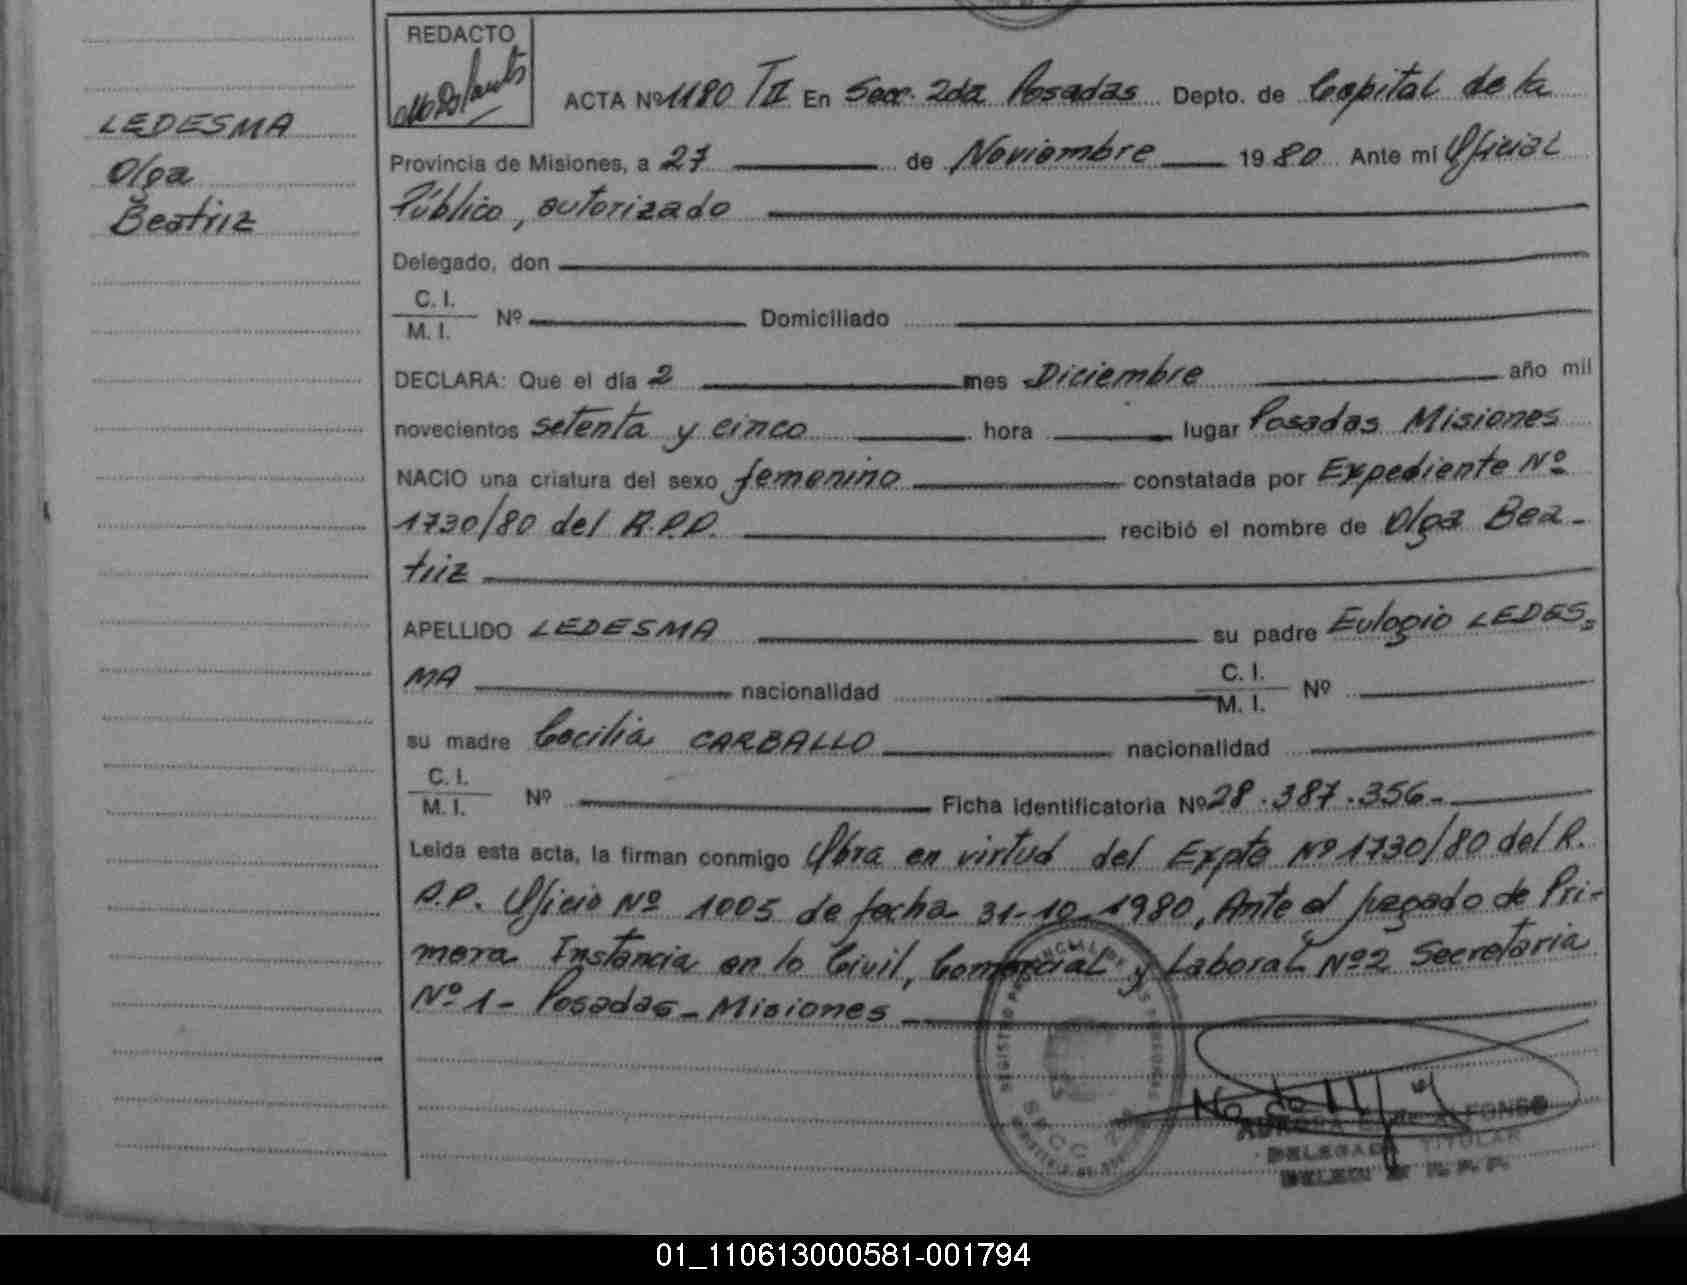 LEDESMA
Olga
Beatriz
REDACTO
ACTA Nº 1180 TII En Secc. 2da Posadas Depto. de Capital de la
Provincia de Misiones, a 27 de Noviembre 1980 Ante mí Oficial
Público, autorizado
Delegado, don
C. I.
M. I. Nº Domiciliado
DECLARA: Que el día 2 mes Diciembre año mil
novecientos setenta y cinco hora lugar Posadas Misiones
NACIO una criatura del sexo femenino constatada por Expediente Nº
1730/80 del R.P.P. recibió el nombre de Olga Bea-
triz
APELLIDO LEDESMA su padre Eulogio LEDES=
MA nacionalidad C. I. M. I. Nº
su madre Cecilia CARBALLO nacionalidad
C. I.
M. I. Nº Ficha identificatoria Nº 28.387.356-
Leída esta acta, la firman conmigo Obra en virtud del Expte Nº 1730/80 del R.
P.P. Oficio Nº 1005 de fecha 31-10-1980, Ante el juzgado de Pri-
mera Instancia en lo Civil, Comercial y Laboral Nº2 Secretaria
Nº 1- Posadas - Misiones
REGISTRO PROVINCIAL DE LAS PERSONAS
SECC. 2da
AURORA
DELEGADA TITULAR
R. P. P.
01_110613000581-001794